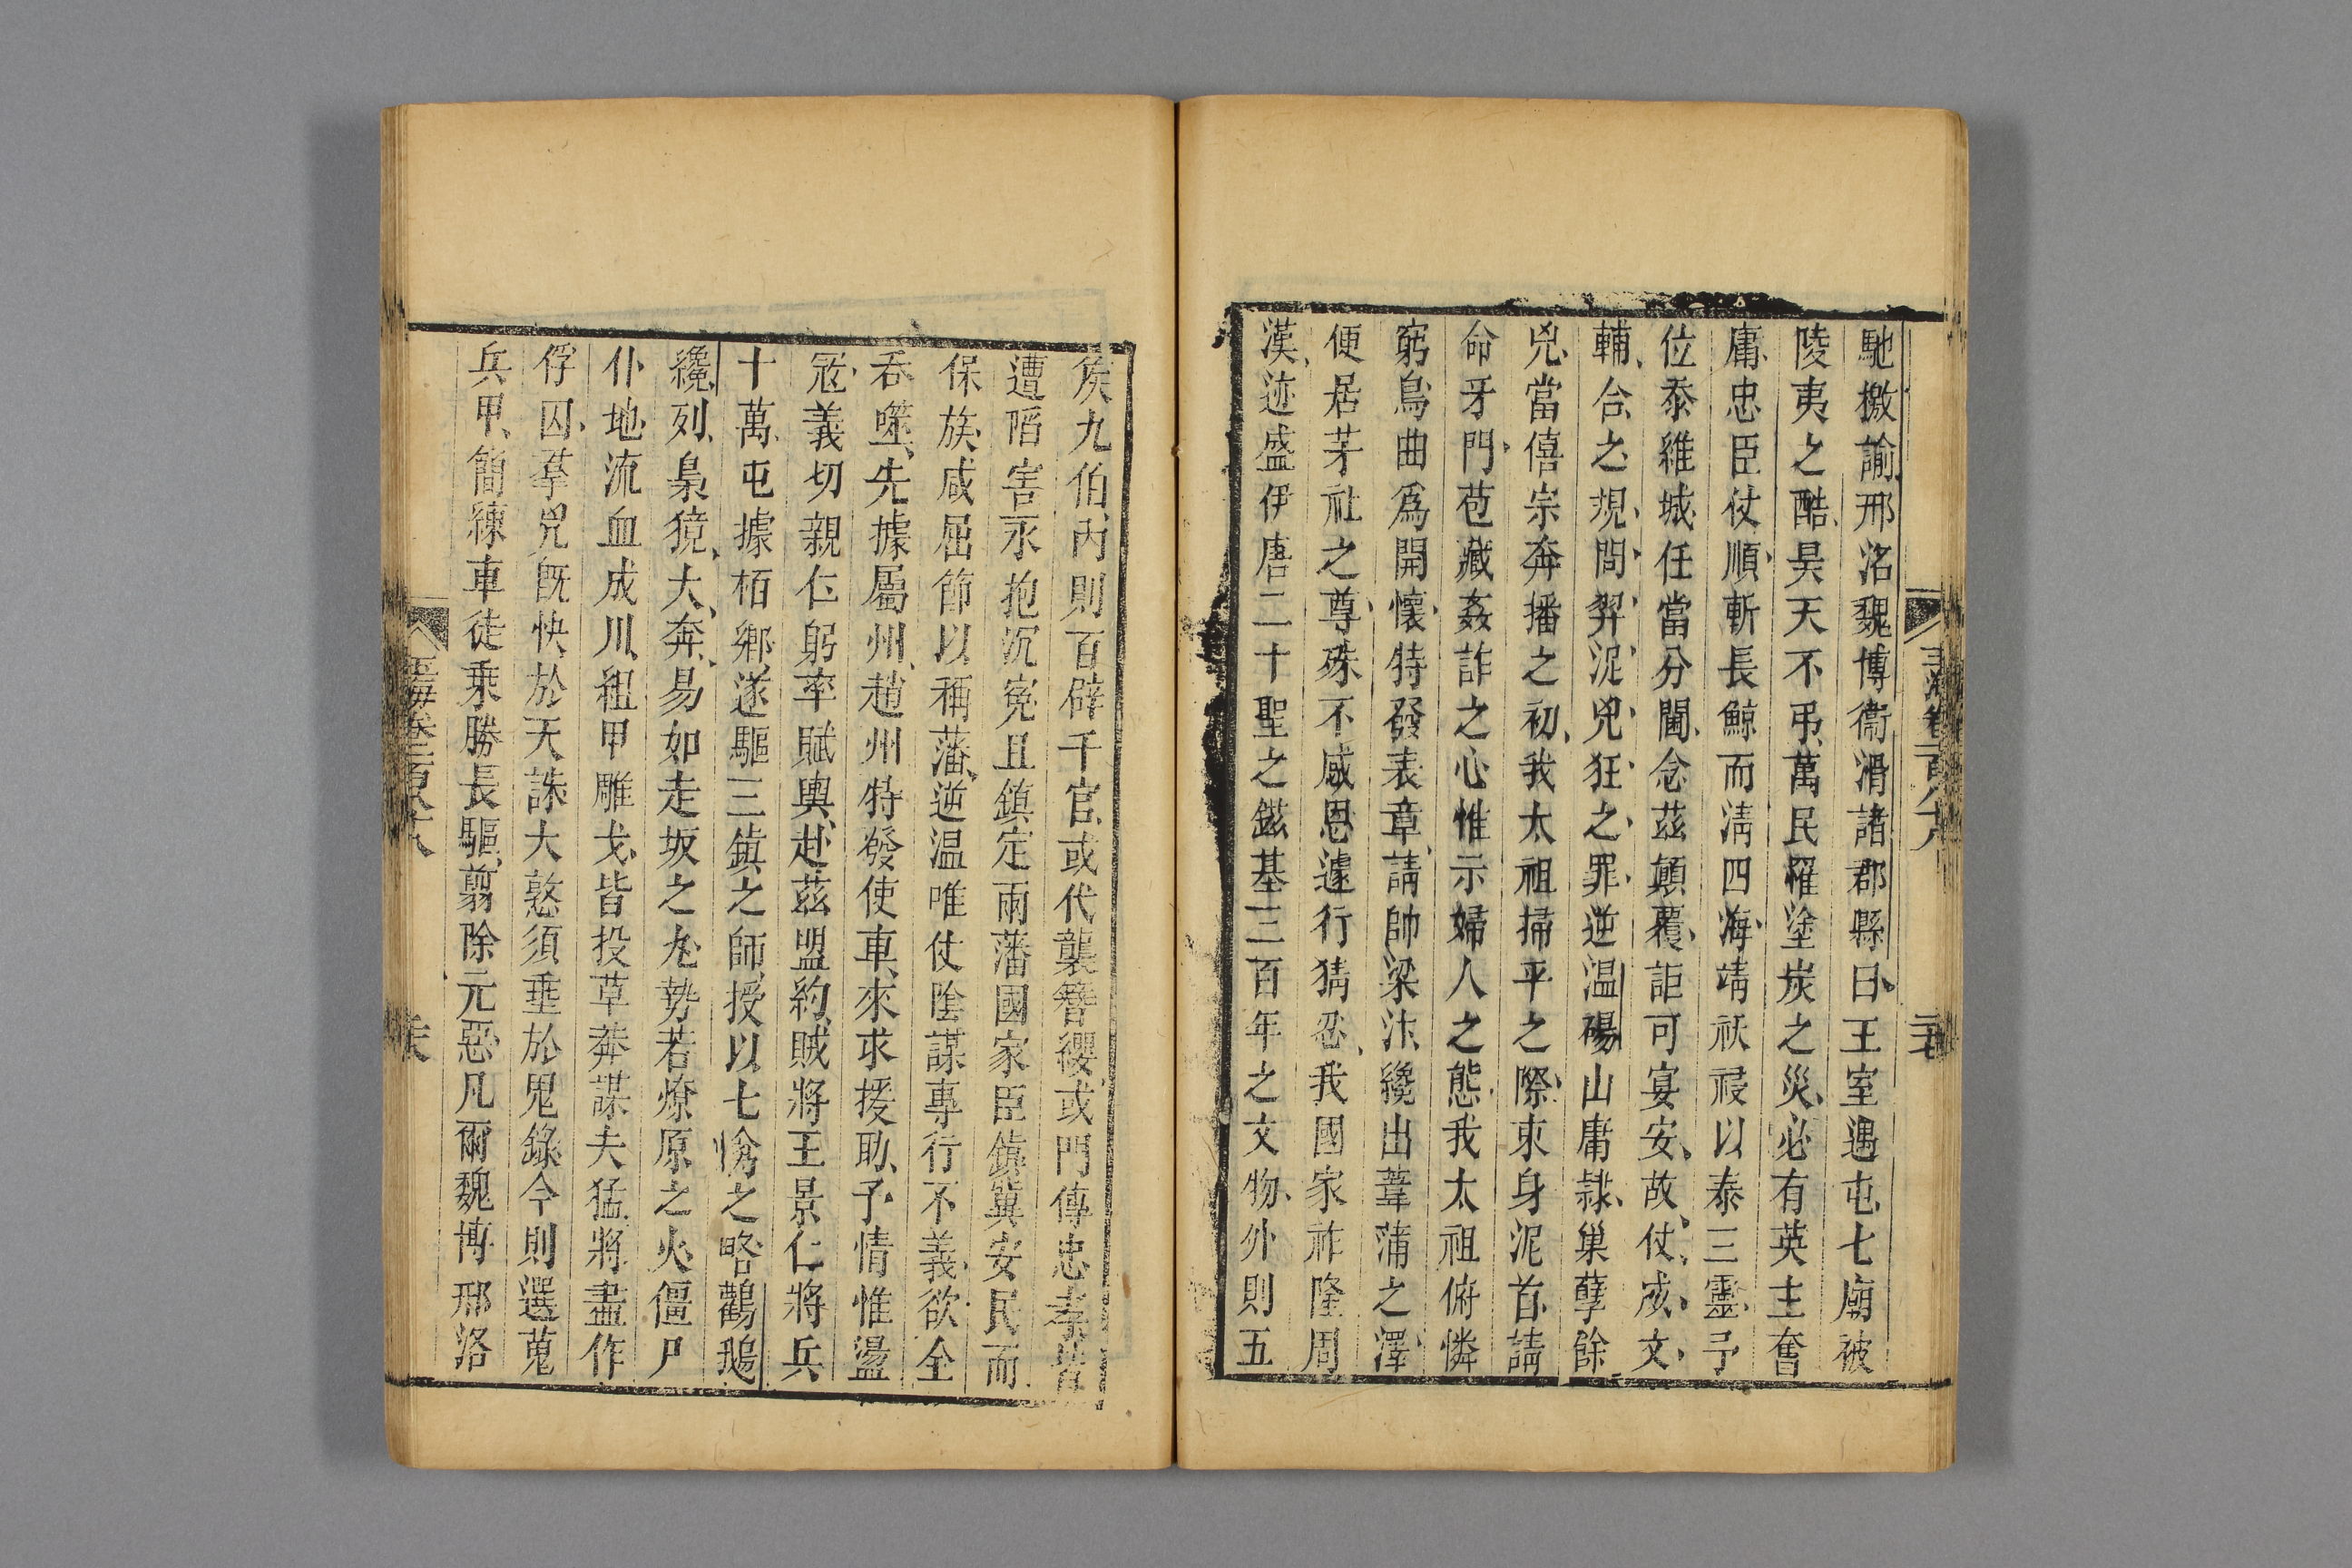 馳檄諭邢洺魏博衞滑諸郡縣曰王室遇屯七廟被
陵夷之酷昊天不弔萬民罹塗炭之災必有英主奮
庸忠臣仗順斬長鯨而淸四海靖祅祲以泰三靈予
位忝維城任當分閫念茲顛覆詎可宴安故仗威文
輔合之規問羿浞兇狂之罪逆温碭山庸隷巢孽餘
兇當僖宗奔播之初我太祖掃平之際束身泥首請
命牙門苞藏姦詐之心惟示婦人之態我太祖俯憐
窮鳥曲爲開懷特發表章請帥梁汴纔出葦蒲之澤
便居茅社之尊殊不感恩遽行猜忍我國家祚隆周
漢迹盛伊唐二十聖之鎡基三百年之文物外則五
侯九伯內則百辟千官或代襲簪纓或門傳忠孝皆
遭陷害永抱沉寃且鎮定兩藩國家臣鎮冀安民而
保族咸屈節以稱藩逆温唯仗陰謀專行不義欲全
吞噬先據屬州趙州特發使車來求援助予情惟盪
冦義切親仁躬率賦輿赴茲盟約賊將王景仁將兵
十萬屯據栢鄉遂驅三鎮之師授以七擒之略鸛鵝
纔列梟獍大奔易如走坂之丸勢若燎原之火僵尸
仆地流血成川組甲雕戈皆投草莽謀夫猛將盡作
俘囚羣兇旣快於天誅大憝須垂於鬼錄今則選蒐
兵甲簡練車徒乘勝長驅翦除元惡凡爾魏博邢洛